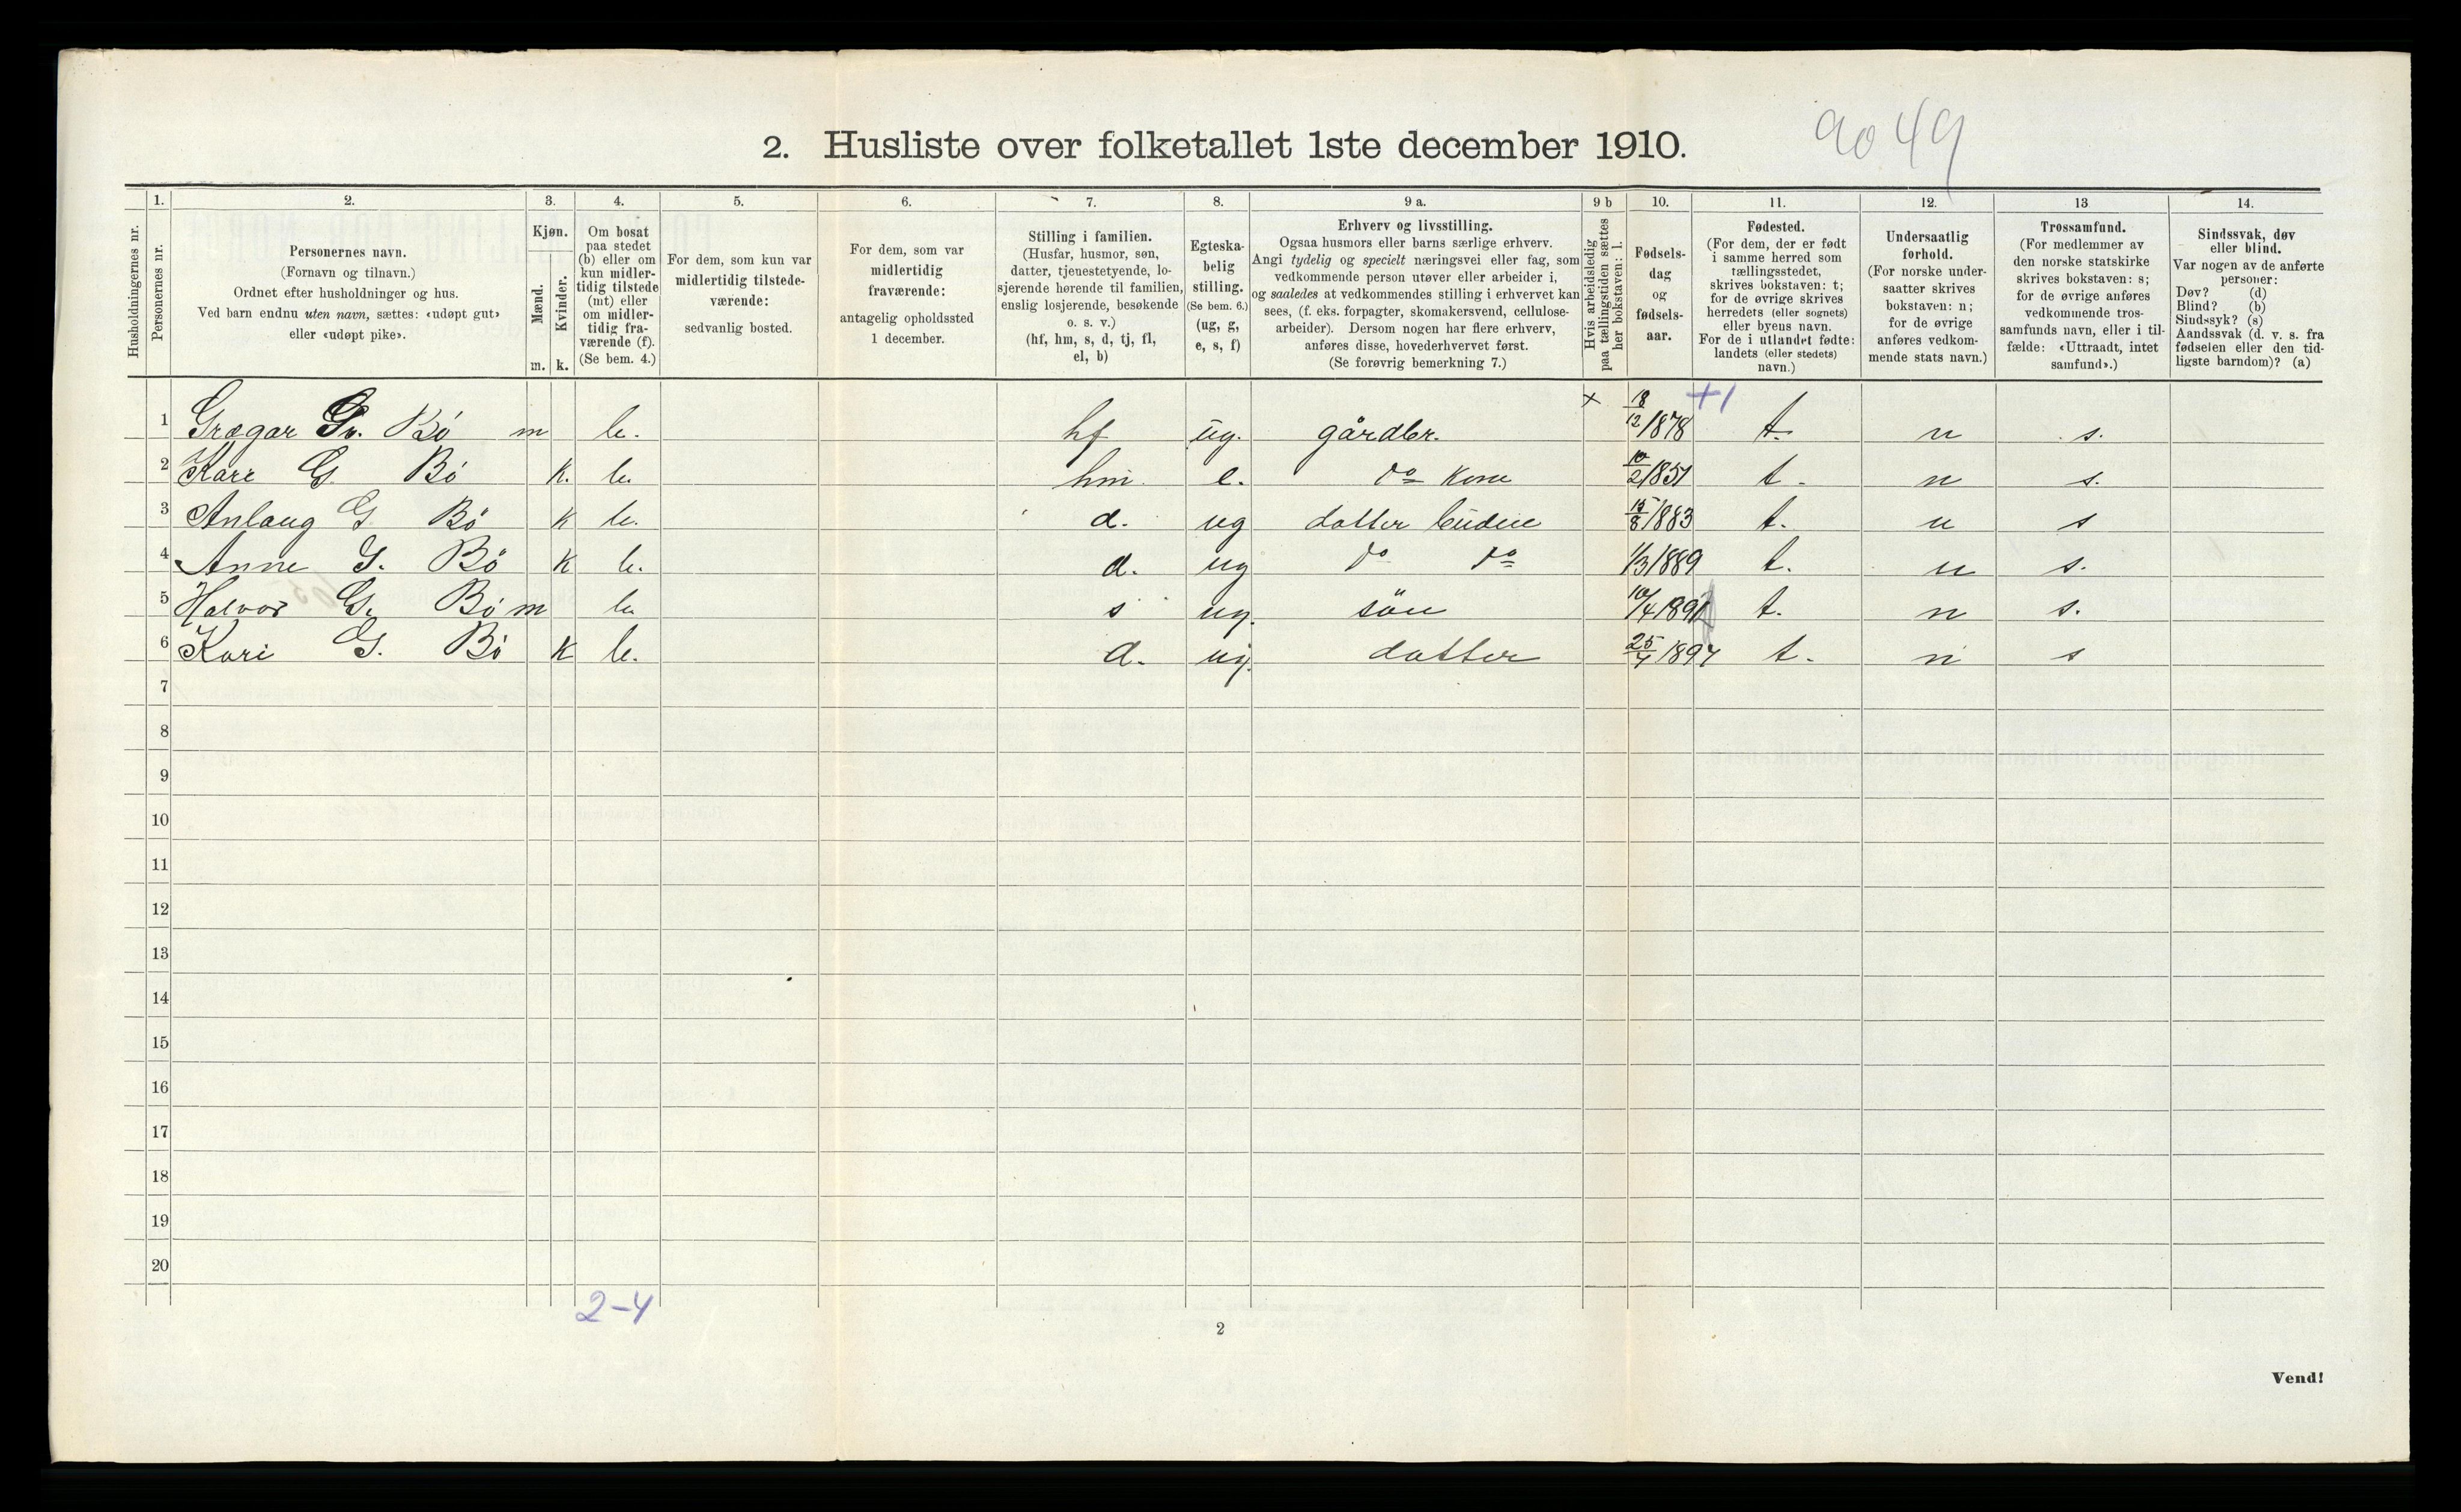 2. Husliste over folketallet 1ste december 1910.
9049
Husholdningernes nr.
1. Personernes nr.
2. Personernes navn.
(Fornavn og tilnavn.)
Ordnet efter husholdninger og hus.
Ved barn endnu uten navn, sættes: «udøpt gut»
eller «udøpt pike».
3. Kjøn.
Mænd. m.
Kvinder. k.
4. Om bosat
paa stedet
(b) eller om
kun midler-
tidig tilstede
(mt) eller
om midler-
tidig fra-
værende (f).
(Se bem. 4.)
5. For dem, som kun var
midlertidig tilstede-
værende:
sedvanlig bosted.
6. For dem, som var
midlertidig
fraværende:
antagelig opholdssted
1 december.
7. Stilling i familien.
(Husfar, husmor, søn,
datter, tjenestetyende, lo-
sjerende hørende til familien,
enslig losjerende, besøkende
o. s. v.)
(hf, hm, s, d, tj, fl,
el, b)
8. Egteska-
belig
stilling.
(Se bem. 6.)
(ug, g,
e, s, f)
9 a. Erhverv og livsstilling.
Ogsaa husmors eller barns særlige erhverv.
Angi tydelig og specielt næringsvei eller fag, som
vedkommende person utøver eller arbeider i,
og saaledes at vedkommendes stilling i erhvervet kan
sees, (f. eks. forpagter, skomakersvend, cellulose-
arbeider). Dersom nogen har flere erhverv,
anføres disse, hovederhvervet først.
(Se forøvrig bemerkning 7.)
9 b Hvis arbeidsledig
paa tællingstiden sættes
her bokstaven: l.
10. Fødsels-
dag
og
fødsels-
aar.
11. Fødested.
(For dem, der er født
i samme herred som
tællingsstedet,
skrives bokstaven: t;
for de øvrige skrives
herredets (eller sognets)
eller byens navn.
For de i utlandet fødte:
landets (eller stedets)
navn.)
12. Undersaatlig
forhold.
(For norske under-
saatter skrives
bokstaven: n;
for de øvrige
anføres vedkom-
mende stats navn.)
13 Trossamfund.
(For medlemmer av
den norske statskirke
skrives bokstaven: s;
for de øvrige anføres
vedkommende tros-
samfunds navn, eller i til-
fælde: «Uttraadt, intet
samfund».)
14. Sindssvak, døv
eller blind.
Var nogen av de anførte
personer:
Døv? (d)
Blind? (b)
Sindssyk? (s)
Aandssvak (d. v. s. fra
fødselen eller den tid-
ligste barndom)? (a)
x +1
1 Grægar Bø m b. hf ug. gårdbr. 18/12 1878 t. n s.
2 Kari G. Bø k. b. hm e. do kone 10/2 1851 t. n s.
3 Anlaug G Bø k b. d. ug datter budeie 15/8 1883 t. n s
4 Anne G. Bø k b. d. ug do do 1/3 1889 t. n s.
5 Halvor G. Bø m b s ug. søn 10/4 189 t. n s.
6 Kari G. Bø k b. d. ug. datter 25/4 1897 t. n s
7
8
9
10
11
12
13
14
15
16
17
18
19
20
2-4
2
Vend!